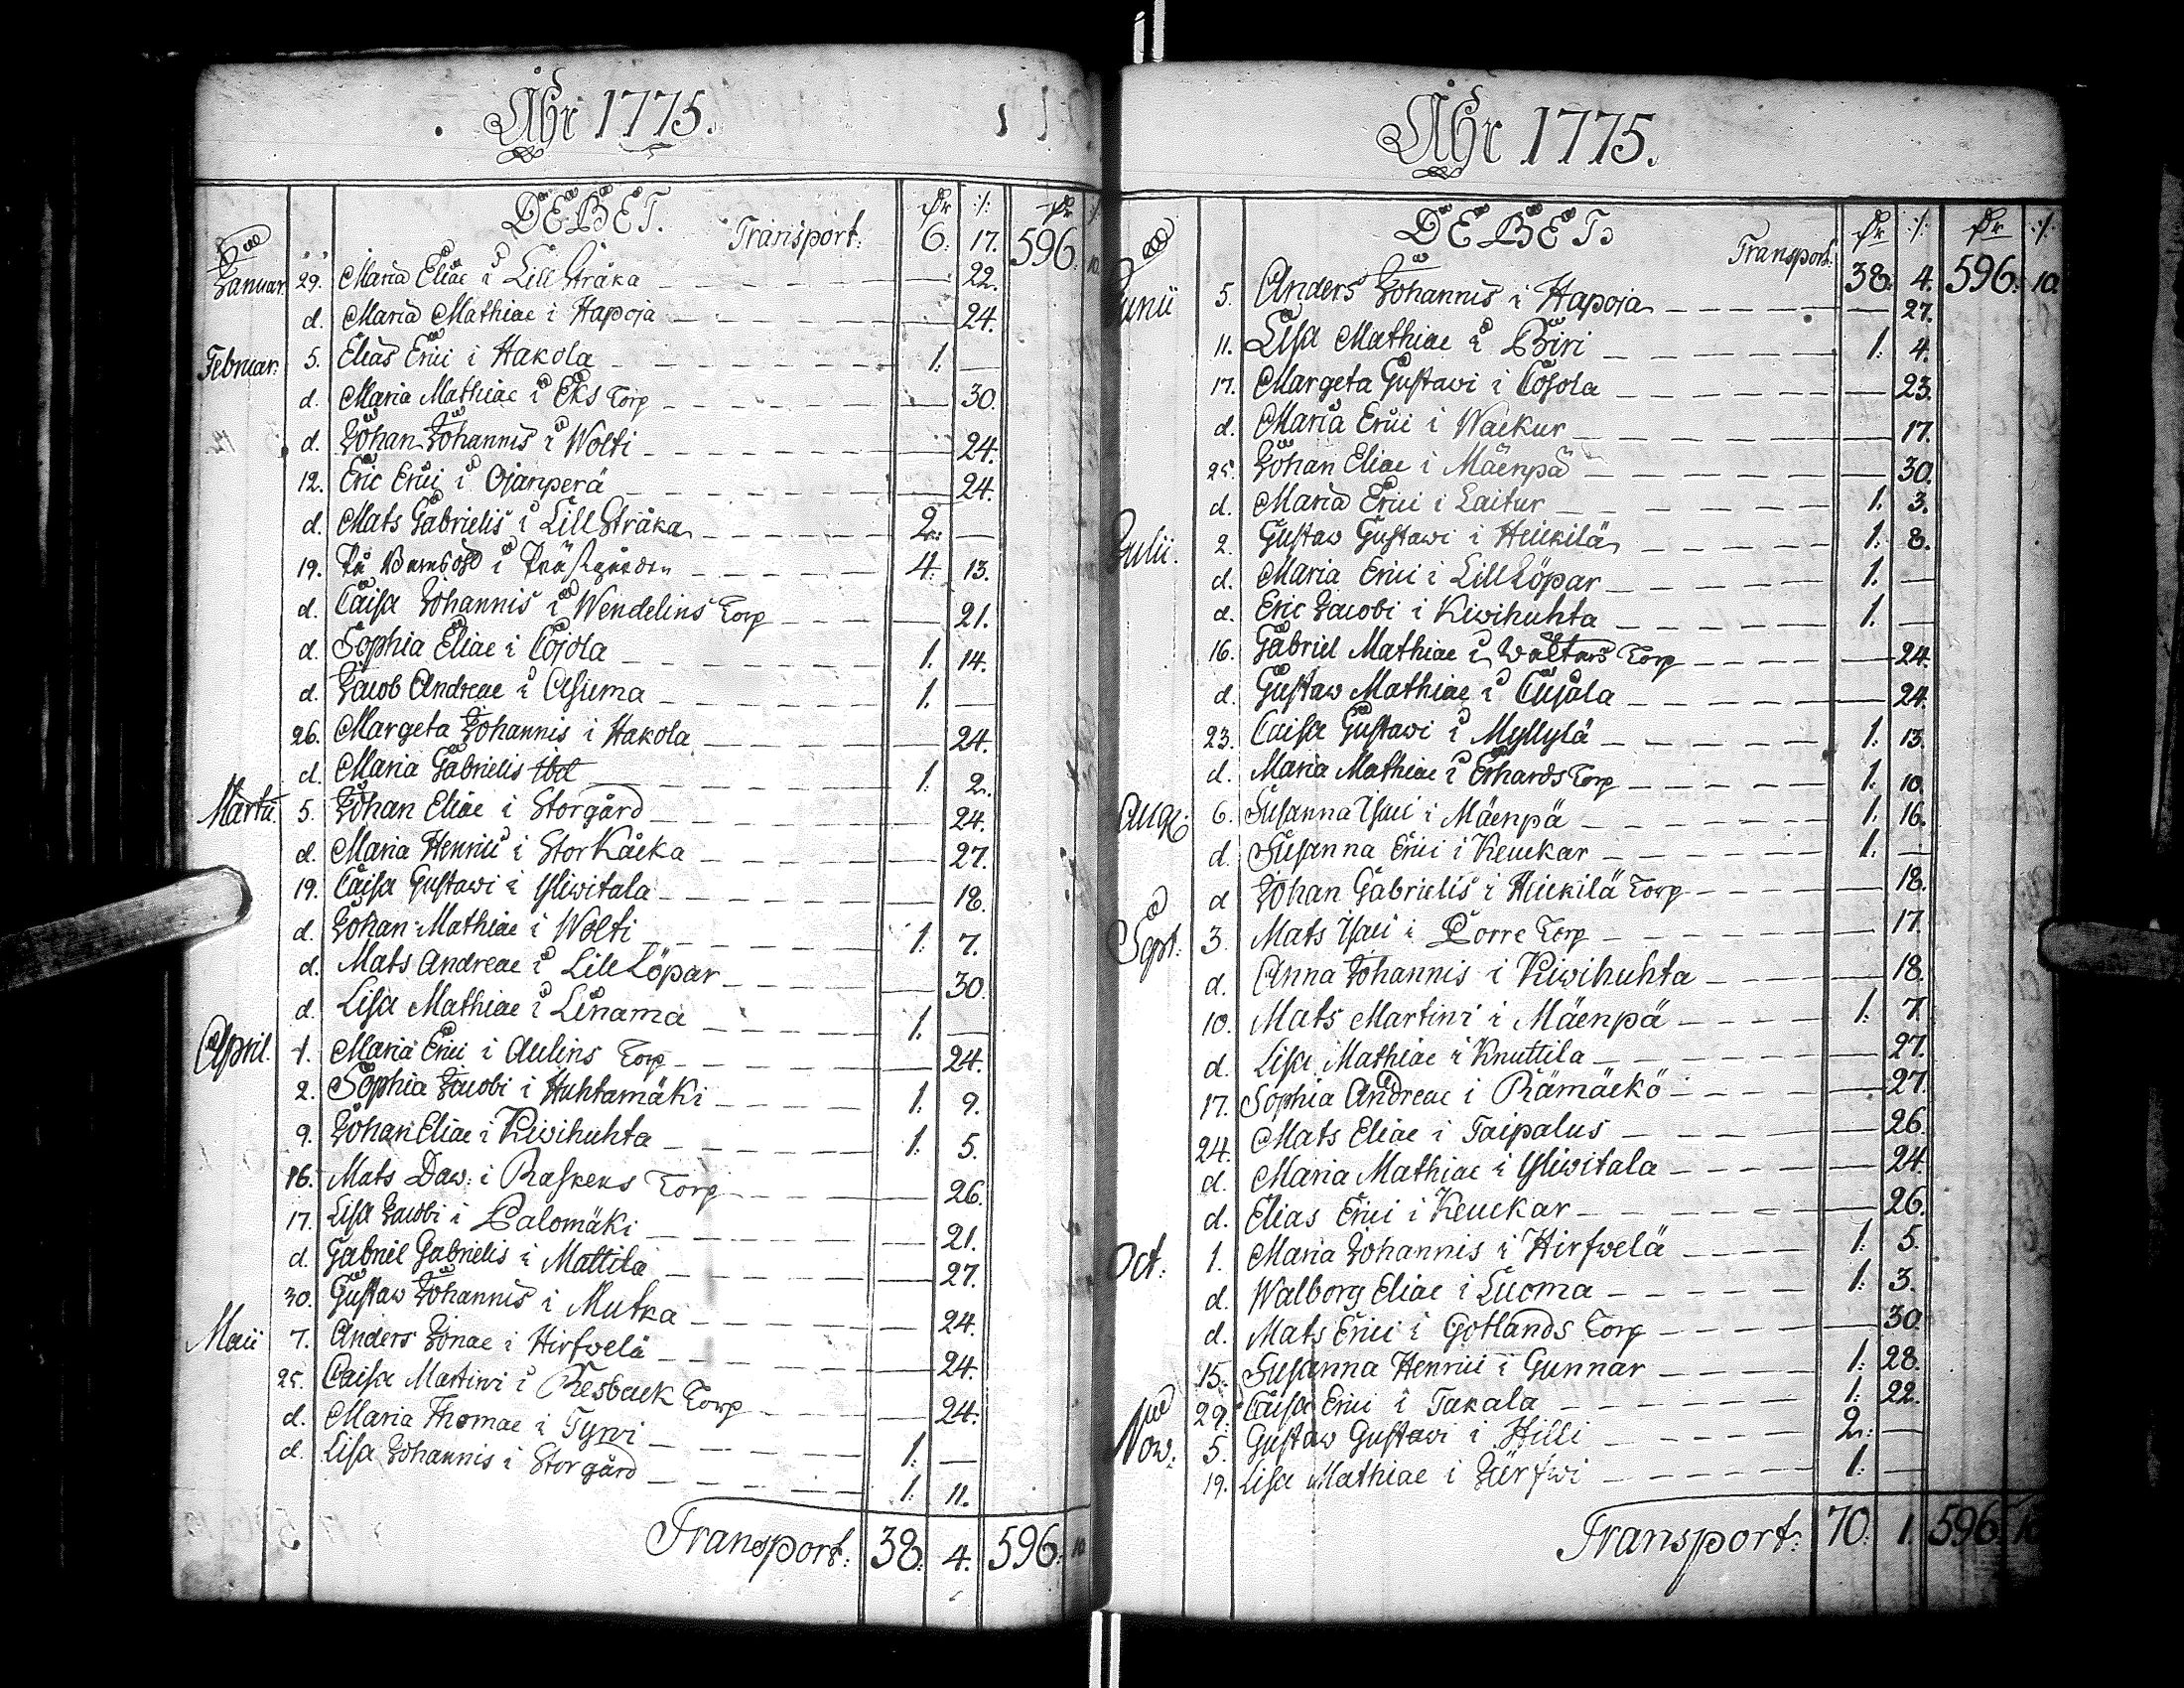 Åhr 1775.
DEBET. Dr :/: Dr :/:
Transport: 6: 17. 596: 10.
Januar. 29. Maria Eliae i Lill Stråka — 22.
d. Maria Mathiae i Hapoja — 24.
Februar: 5. Elias Erici i Hakola 1: —
d. Maria Mathiae i Eks Torp — 30.
d. Johan Johannis i Wolti — 24.
12. Eric Erici i Ojanperä — 24.
d. Mats Gabrielis i Lill Stråka 2: —
19. På Barnsöhl i Prästgården 4: 13.
d. Caisa Johannis i Wendelins Torp — 21.
d. Sophia Eliae i Cojola 1. 14.
d. Jacob Andreae i Asuma 1. —
26. Margeta Johannis i Hakola — 24.
d. Maria Gabrielis ibd 1. 2.
Martii. 5. Johan Eliae i Storgård — 24.
d. Maria Henrici i Stor Kåcka — 27.
19. Caisa Gustawi i Yliwitala — 18.
d. Johan Mathiae i Wolti 1. 7.
d. Mats Andreae i Lill Löpar — 30.
d. Lisa Mathiae i Linama 1. —
April. 1. Maria Erici i Aulins Torp — 24.
2. Sophia Jacobi i Huhtamäki 1: 9.
9. Johan Eliae i Kiwihuhta 1: 5.
16. Mats Daw: i Raskens Torp — 26.
17. Lisa Jacobi i Palomäki — 21.
d. Gabriel Gabrielis i Mattila — 27.
30. Gustaw Johannis i Mutka — 24.
Maii 7. Anders Jonae i Hirfwelä — 24.
25. Caisa Martini i Resback Torp — 24.
d. Maria Thomae i Tyrni 1: —
d. Lisa Johannis i Storgård 1: 11.
Transport: 38: 4. 596: 10
Åhr 1775.
DEBET. Dr :/: Dr :/:
Transport: 38: 4. 596: 10.
Junii 5. Anders Johannis i Hapoja — 27.
11. Lisa Mathiae i Piri 1: 4.
17. Margeta Gustawi i Cosola — 23.
d. Maria Erici i Wackur — 17.
25. Johan Eliae i Mäenpä — 30.
d. Maria Erici i Laitur 1. 3.
Julii. 2. Gustaw Gustawi i Heickilä 1. 8.
d. Maria Erici i Lill Löpar 1. —
d. Eric Jacobi i Kiwihuhta 1. —
16. Gabriel Mathiae i Waltars Torp — 24.
d. Gustaw Mathiae i Cusola — 24.
23. Caisa Gustawi i Myllylä 1: 13.
d. Maria Mathiae i Erhards Torp 1: 10.
Aug: 6. Susanna Isaci i Mäenpä 1. 16.
d. Susanna Erici i Keuckar 1. —
d Johan Gabrielis i Heickilä Torp — 18.
Sept: 3. Mats Isaci i Porre Torp — 17.
d. Anna Johannis i Kiwihuhta — 18.
10. Mats Martini i Mäenpä 1: 7.
d. Lisa Mathiae i Knuttila — 27.
17. Sophia Andreae i Rämäckö — 27.
24. Mats Eliae i Taipalus — 26.
d. Maria Mathiae i Yliwitala — 24.
d. Elias Erici i Keuckar — 26.
Oct: 1. Maria Johannis i Hirfwelä 1: 5.
d. Walborg Eliae i Luoma 1: 3.
d. Mats Erici i Gotlands Torp — 30.
15. Susanna Henrici i Gunnar 1: 28.
29. Caisa Erici i Takala 1: 22.
Now: 5. Gustaw Gustawi i Hilli 2: —
19. Lisa Mathiae i Järfwi 1: —
Transport: 70: 1. 596: 10